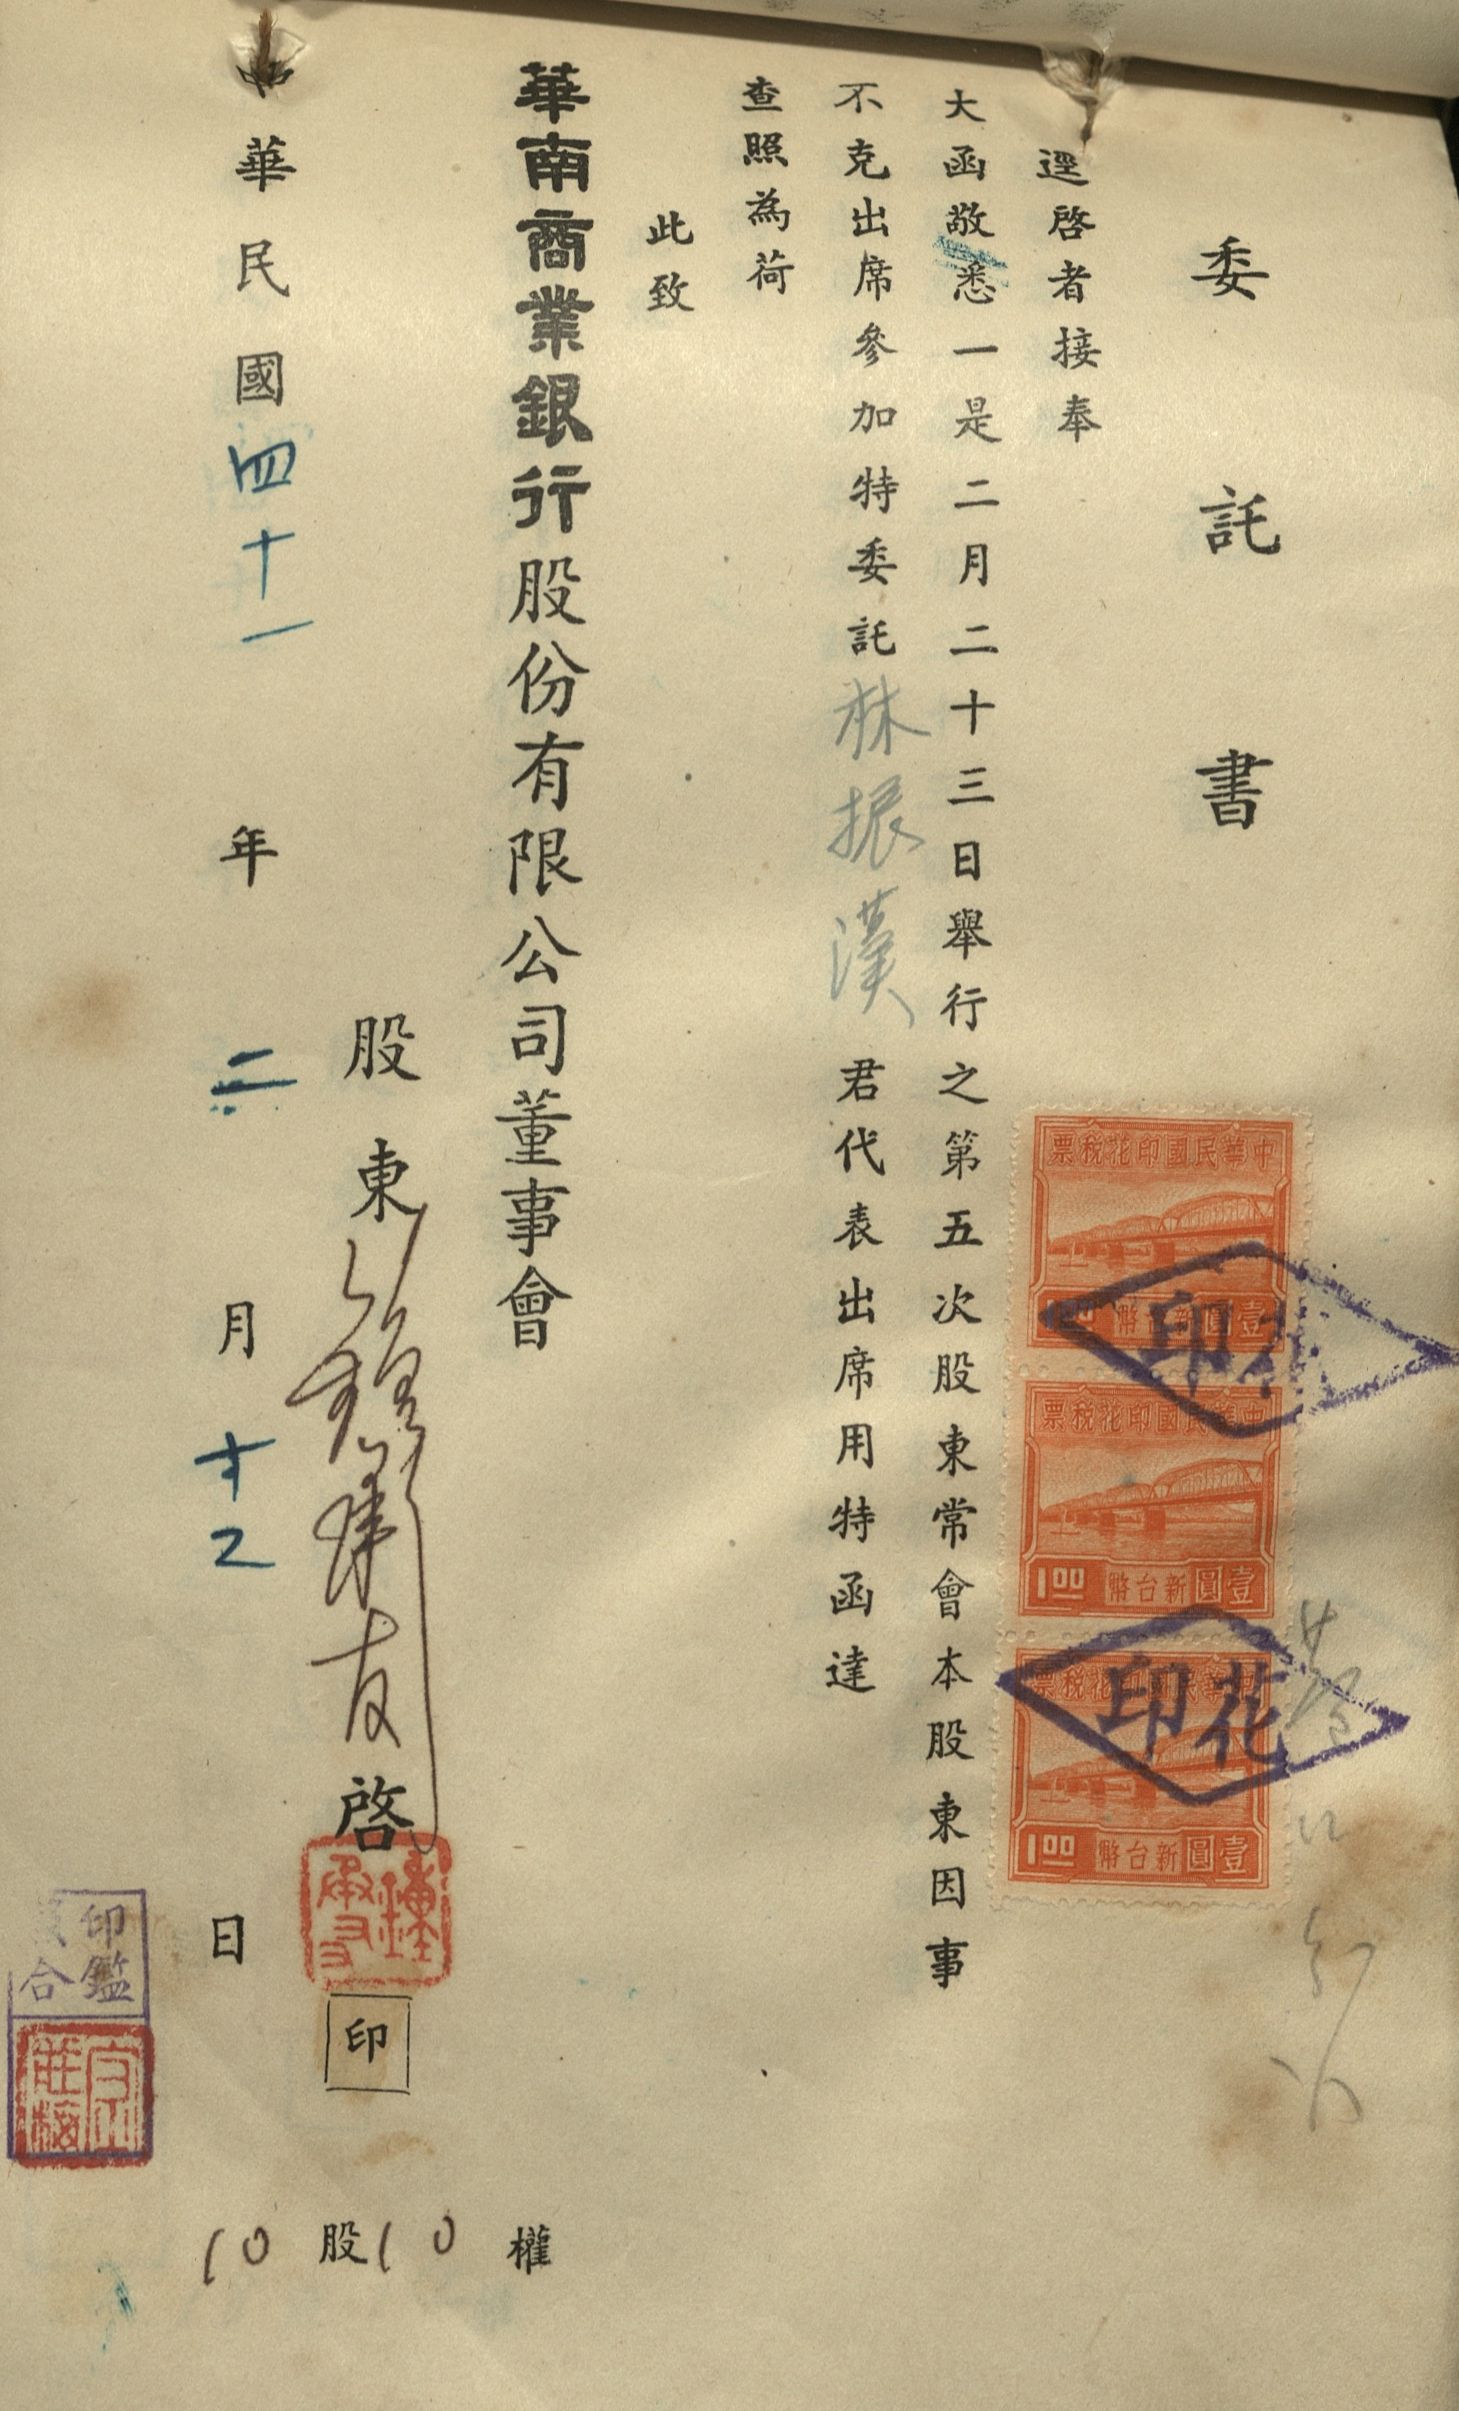 委託書
逕啓者接奉
大函敬悉一是二月二十三日舉行之第五次股東常會本股東因事
不克出席參加特委託林振漢君代表出席用特函達
查照為荷
此致
華南商業銀行股份有限公司董事會
股東
啓
印
中華民國四十一年二月十二日
10股10權
中華民國印花稅票
新台幣壹圓
中華民國印花稅票
1.00 新台幣壹圓
中華民國印花稅票
1.00 新台幣壹圓
印花
印花
印鑑
合